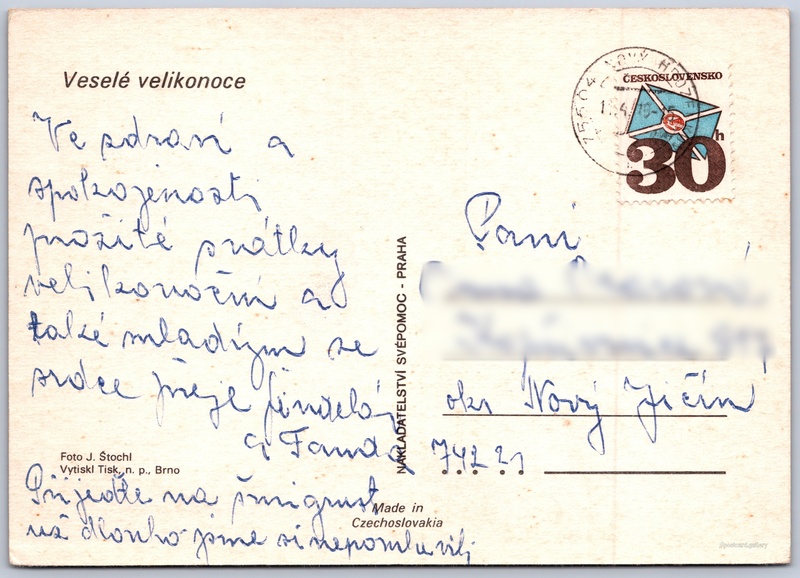 Veselé velikonoce
Ve zdraví a
spokojenosti
prožité svátky
velikonoční a
také mladízm ze
srdce přeje
a Fanda
Přijeďte na šmigrust
už dlouho jsme si nepomluvili
Foto J. Štochl
Vytiskl Tisk, n. p., Brno
NAKLADATELSTVÍ SVÉPOMOC - PRAHA
Made in
Czechoslovakia
ČESKOSLOVENSKO
30 h
755 04 NOVÝ
Paní
okr Nový Jičín
742 21